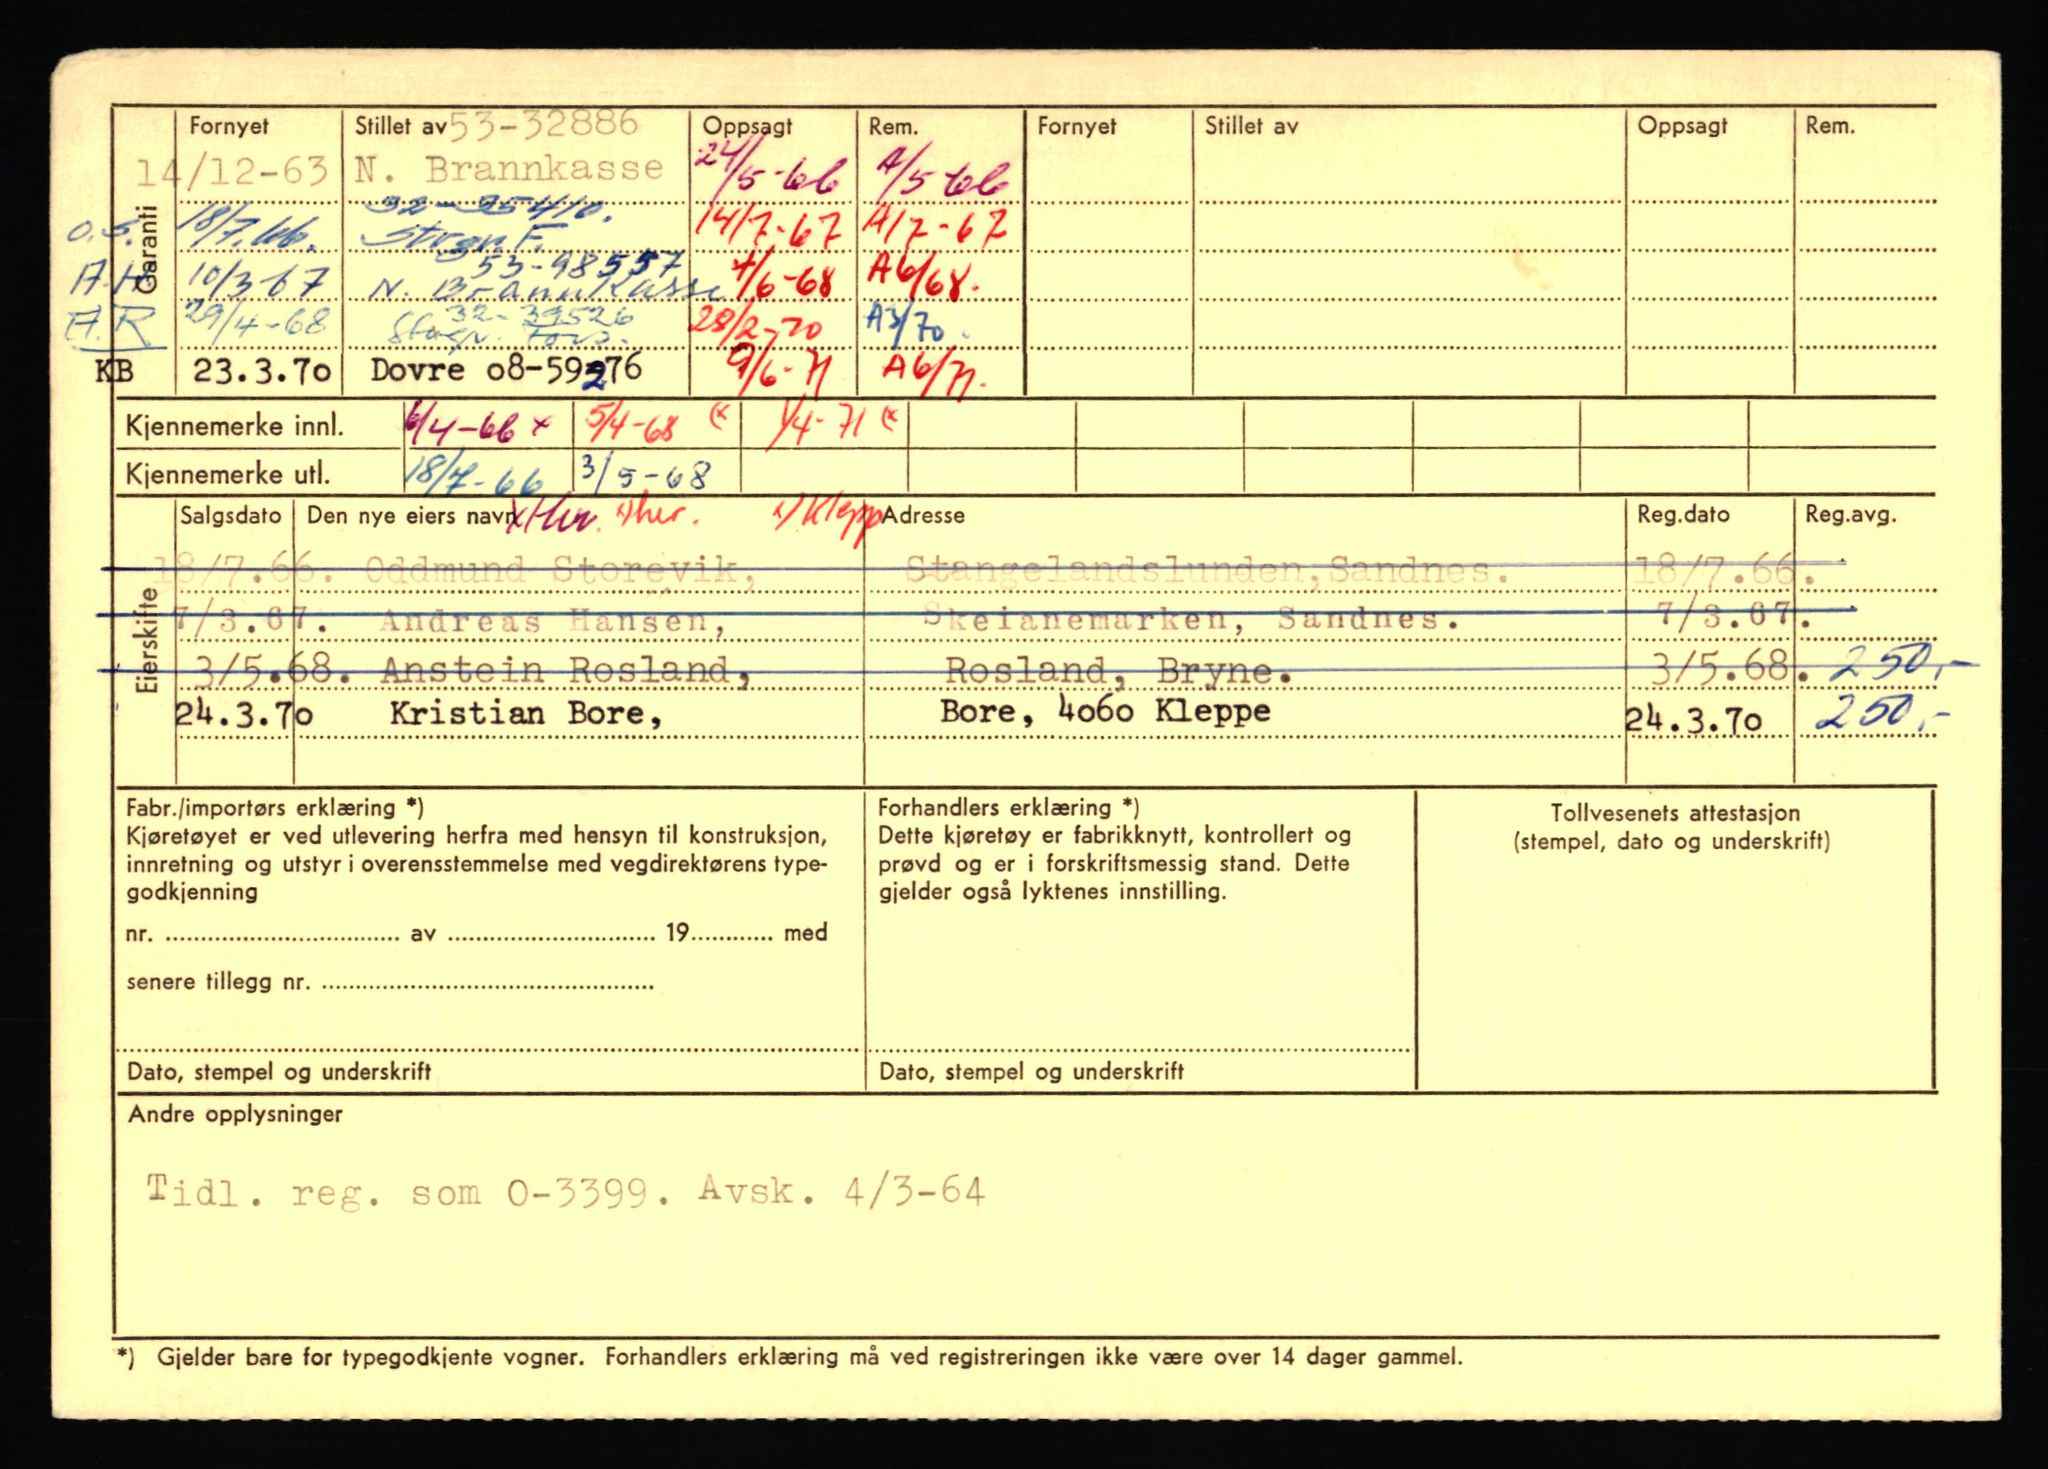 Fornyet Stillet av 53-32886 Oppsagt Rem. Fornyet Stillet av Oppsagt Rem.
14/12-63 N. Brannkasse 24/5-66 A/5-66
Garanti
32-25410.
O.S. 18/7.66. 14/7-67 A/7-67
53-98557
A.H 10/3-67 N. Brannkasse 4/6-68 A6/68.
32-39526
A.R 29/4-68 28/2-70 A3/70.
KB 23.3.70 Dovre 08-59276 9/6-71 A6/71.
Kjennemerke innl. 6/4-66 x 5/4-68 (x 1/4-71 (x
Kjennemerke utl. 18/7-66 3/5-68
Salgsdato Den nye eiers navn x) Her. x) her. x) Klepp Adresse Reg.dato Reg.avg.
Eierskifte
18/7.66. Oddmund Storevik, Stangelandslunden, Sandnes. 18/7.66.
7/3.67. Andreas Hansen, Skeianemarken, Sandnes. 7/3.67.
3/5.68. Anstein Rosland, Rosland, Bryne. 3/5.68. 250,-
24.3.70 Kristian Bore, Bore, 4060 Kleppe 24.3.70 250,-
Fabr./importørs erklæring *)
Kjøretøyet er ved utlevering herfra med hensyn til konstruksjon,
innretning og utstyr i overensstemmelse med vegdirektørens type-
godkjenning
nr. .................... av .................... 19............ med
senere tillegg nr. ....................
Dato, stempel og underskrift
Forhandlers erklæring *)
Dette kjøretøy er fabrikknytt, kontrollert og
prøvd og er i forskriftsmessig stand. Dette
gjelder også lyktenes innstilling.
Dato, stempel og underskrift
Tollvesenets attestasjon
(stempel, dato og underskrift)
Andre opplysninger
Tidl. reg. som O-3399. Avsk. 4/3-64
*) Gjelder bare for typegodkjente vogner. Forhandlers erklæring må ved registreringen ikke være over 14 dager gammel.